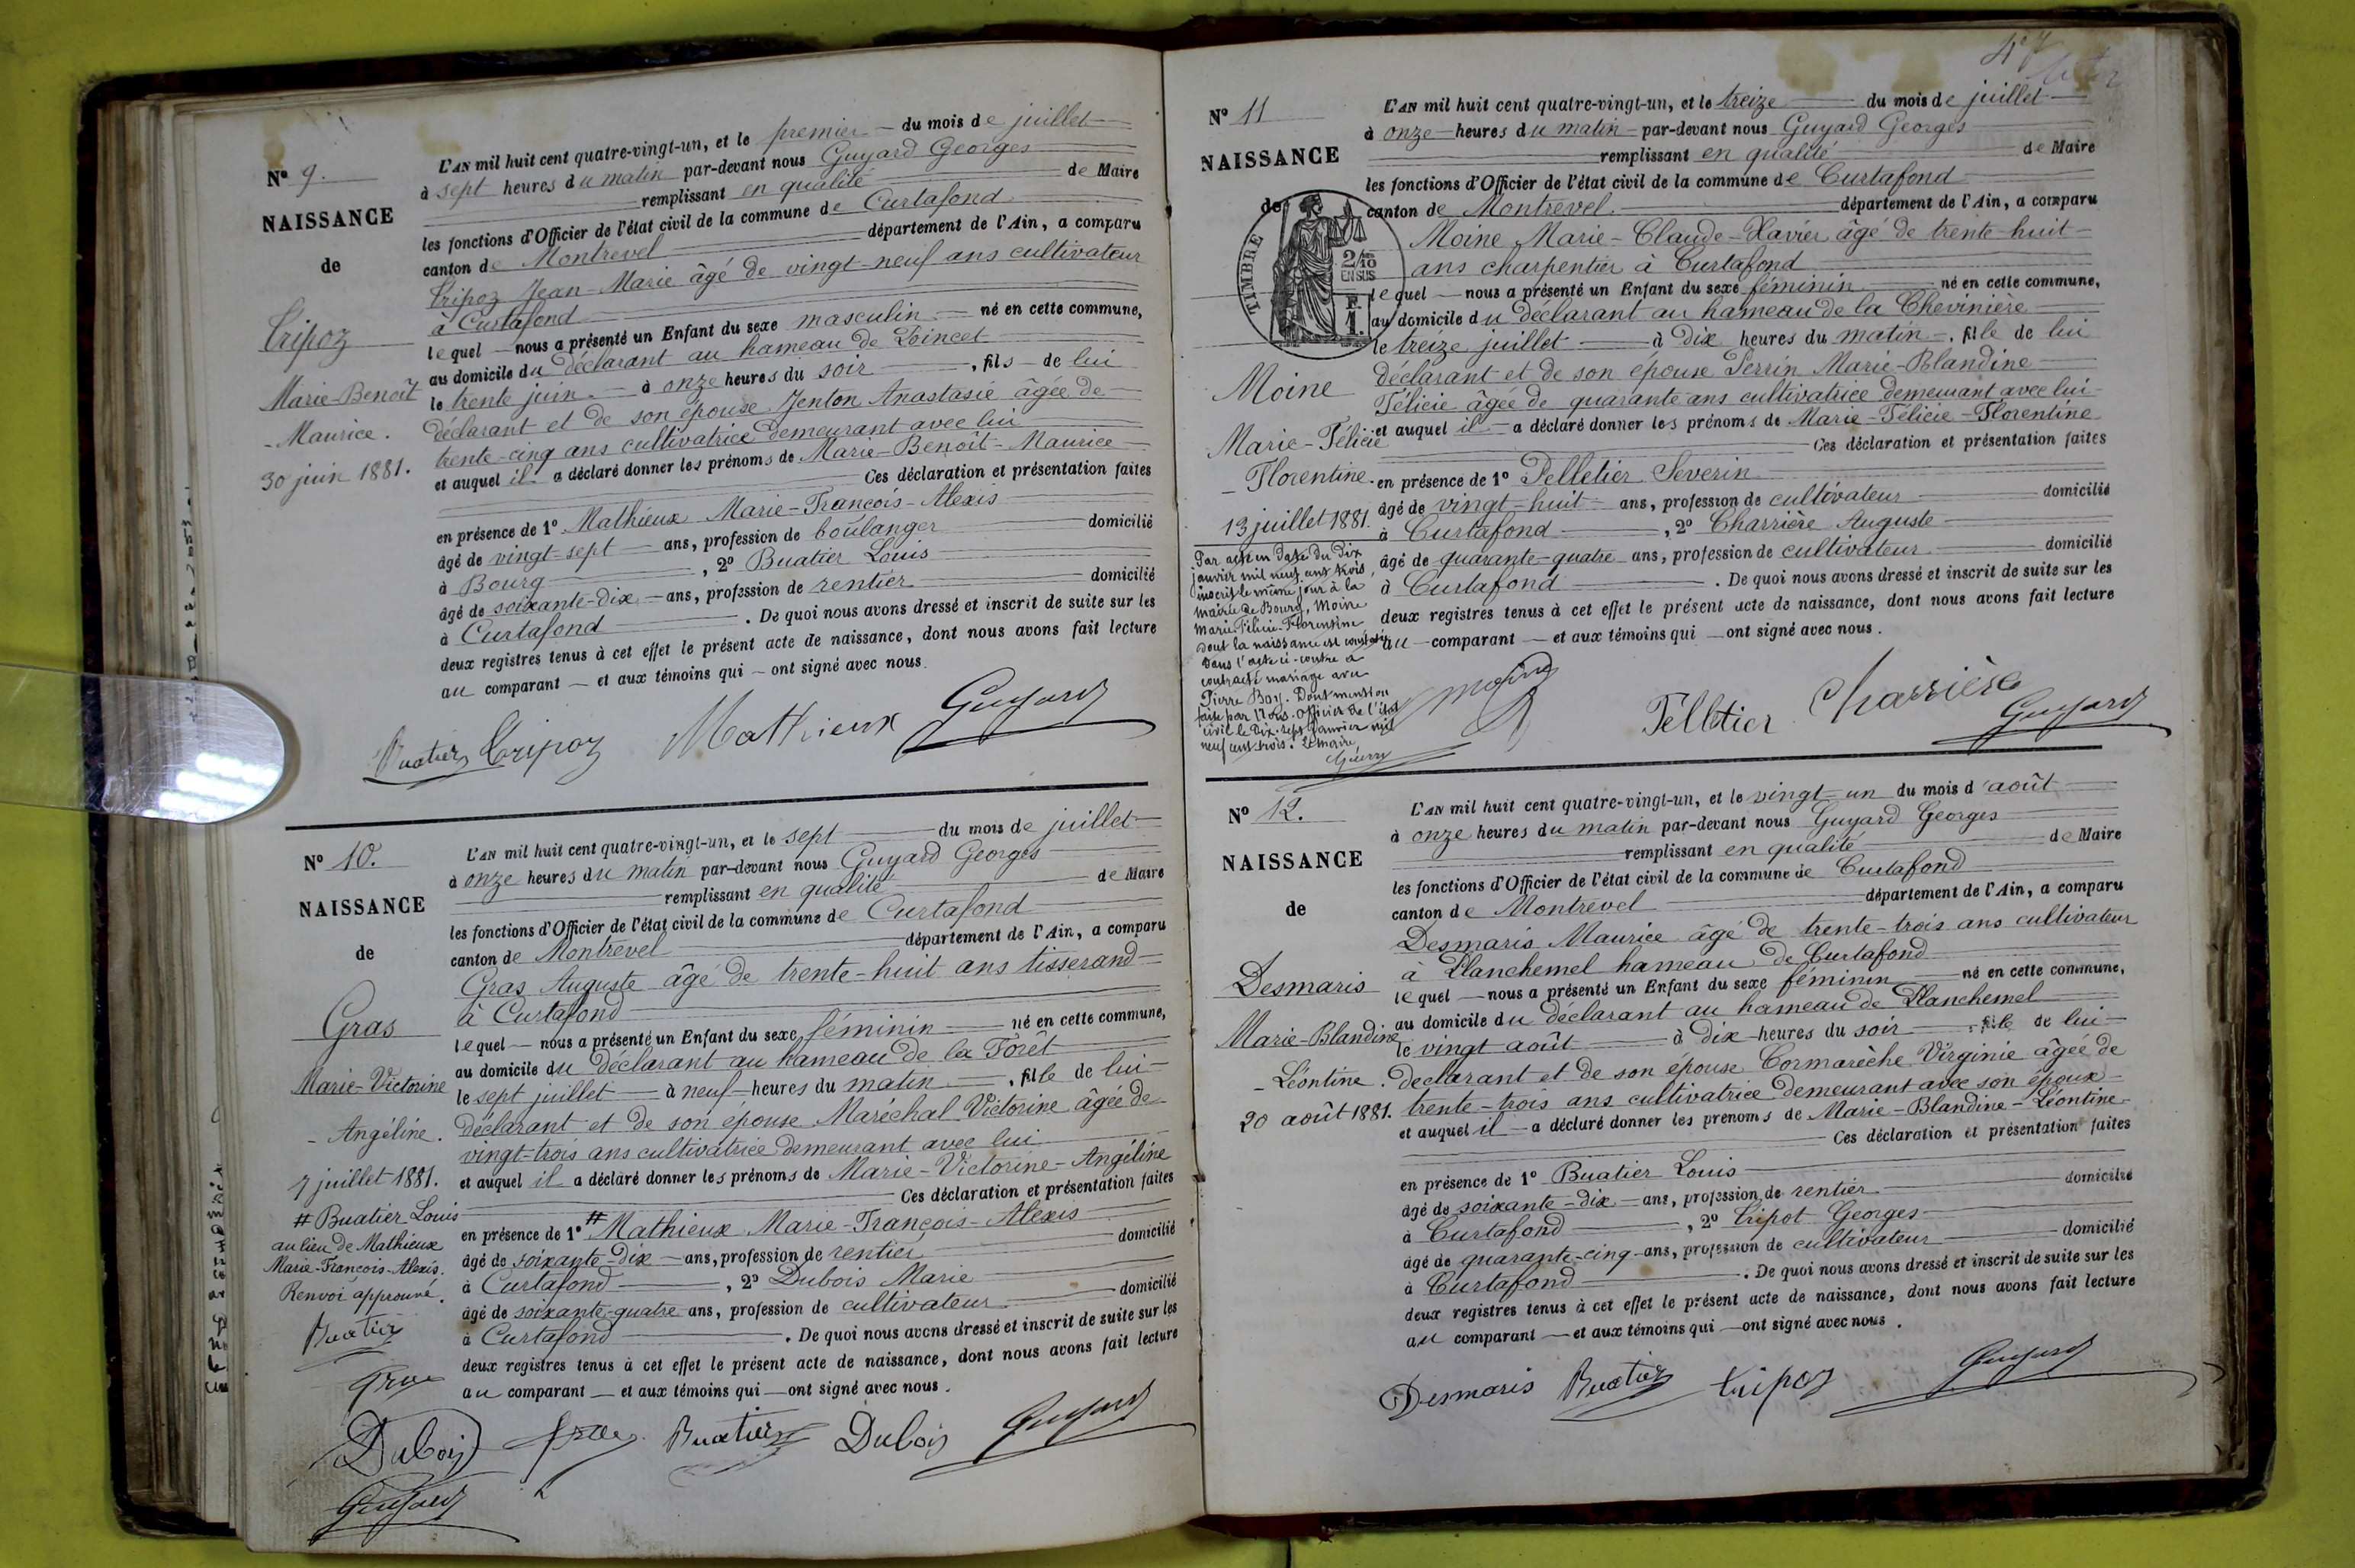 Nº 9.
NAISSANCE
de
Tripoz
Marie-Benoît
- Maurice.
30 juin 1881.
L'AN mil huit cent quatre-vingt-un, et le premier du mois de juillet
à sept heures du matin par-devant nous Guyard Georges
remplissant en qualité de Maire
les fonctions d'Officier de l'état civil de la commune de Curtafond
canton de Montrevel département de l'Ain, a comparu
Tripoz Jean-Marie âgé de vingt-neuf ans cultivateur
à Curtafond
lequel nous a présenté un Enfant du sexe masculin né en cette commune,
au domicile du déclarant au hameau de Loincet
le trente juin à onze heures du soir, fils de lui
déclarant et de son épouse Jenton Anastasie âgée de
trente-cinq ans cultivatrice demeurant avec lui
et auquel il a déclaré donner les prénoms de Marie-Benoît-Maurice
Ces déclaration et présentation faites
en présence de 1º Mathieux Marie-François-Alexis
âgé de vingt-sept ans, profession de boulanger domicilié
à Bourg, 2º Buatier Louis
âgé de soixante-dix ans, profession de rentier domicilié
à Curtafond. De quoi nous avons dressé et inscrit de suite sur les
deux registres tenus à cet effet le présent acte de naissance, dont nous avons fait lecture
au comparant et aux témoins qui ont signé avec nous.
Buatier Tripoz Mathieux Guyard
Nº 10.
NAISSANCE
de
Gras
Marie-Victorine
- Angéline.
7 juillet 1881.
# Buatier Louis
au lieu de Mathieux
Marie-François-Alexis.
Renvoi approuvé.
Buatier
Gras
Dubois
Guyard
L'AN mil huit cent quatre-vingt-un, et le sept du mois de juillet
à onze heures du matin par-devant nous Guyard Georges
remplissant en qualité de Maire
les fonctions d'Officier de l'état civil de la commune de Curtafond
canton de Montrevel département de l'Ain, a comparu
Gras Auguste âgé de trente-huit ans tisserand
à Curtafond
lequel nous a présenté un Enfant du sexe féminin né en cette commune,
au domicile du déclarant au hameau de la Forêt
le sept juillet à neuf heures du matin, fille de lui
déclarant et de son épouse Maréchal Victorine âgée de
vingt-trois ans cultivatrice demeurant avec lui
et auquel il a déclaré donner les prénoms de Marie-Victorine-Angéline
Ces déclaration et présentation faites
en présence de 1º # Mathieux Marie-François-Alexis
âgé de soixante-dix ans, profession de rentier domicilié
à Curtafond, 2º Dubois Marie
âgé de soixante-quatre ans, profession de cultivateur domicilié
à Curtafond. De quoi nous avons dressé et inscrit de suite sur les
deux registres tenus à cet effet le présent acte de naissance, dont nous avons fait lecture
au comparant et aux témoins qui ont signé avec nous.
Gras Buatier Dubois Guyard
47
Nº 11
NAISSANCE
de
TIMBRE
2/10
EN SUS
F.
1.
Moine
Marie-Félicie
- Florentine.
13 juillet 1881.
Par acte en date du dix
janvier mil neuf cent trois,
inscrit le même jour à la
mairie de Bourg, Moine
Marie-Félicie-Florentine
dont la naissance est constatée
dans l'acte ci-contre a
contracté mariage avec
Pierre Bay. Dont mention
faite par Nous. Officier de l'état
civil le dix-sept Janvier mil
neuf cent trois. Le maire,
Guerry
L'AN mil huit cent quatre-vingt-un, et le treize du mois de juillet
à onze heures du matin par-devant nous Guyard Georges
remplissant en qualité de Maire
les fonctions d'Officier de l'état civil de la commune de Curtafond
canton de Montrevel département de l'Ain, a comparu
Moine Marie-Claude-Xavier âgé de trente-huit
ans charpentier à Curtafond
lequel nous a présenté un Enfant du sexe féminin né en cette commune,
au domicile du déclarant au hameau de la Chevinière
le treize juillet à dix heures du matin, fille de lui
déclarant et de son épouse Perrin Marie-Blandine
Félicie âgée de quarante ans cultivatrice demeurant avec lui
et auquel il a déclaré donner les prénoms de Marie-Félicie-Florentine
Ces déclaration et présentation faites
en présence de 1º Pelletier Severin
âgé de vingt-huit ans, profession de cultivateur domicilié
à Curtafond, 2º Charrière Auguste
âgé de quarante-quatre ans, profession de cultivateur domicilié
à Curtafond. De quoi nous avons dressé et inscrit de suite sur les
deux registres tenus à cet effet le présent acte de naissance, dont nous avons fait lecture
au comparant et aux témoins qui ont signé avec nous.
Moine Pelletier Charrière Guyard
Nº 12.
NAISSANCE
de
Desmaris
Marie-Blandine
- Léontine.
20 août 1881.
L'AN mil huit cent quatre-vingt-un, et le vingt-un du mois d'août
à onze heures du matin par-devant nous Guyard Georges
remplissant en qualité de Maire
les fonctions d'Officier de l'état civil de la commune de Curtafond
canton de Montrevel département de l'Ain, a comparu
Desmaris Maurice âgé de trente-trois ans cultivateur
à Planchemel hameau de Curtafond
lequel nous a présenté un Enfant du sexe féminin né en cette commune,
au domicile du déclarant au hameau de Planchemel
le vingt août à dix heures du soir, fille de lui
déclarant et de son épouse Cormarèche Virginie âgée de
trente-trois ans cultivatrice demeurant avec son époux
et auquel il a déclaré donner les prénoms de Marie-Blandine-Léontine
Ces déclaration et présentation faites
en présence de 1º Buatier Louis
âgé de soixante-dix ans, profession de rentier domicilié
à Curtafond, 2º Tripot Georges
âgé de quarante-cinq ans, profession de cultivateur domicilié
à Curtafond. De quoi nous avons dressé et inscrit de suite sur les
deux registres tenus à cet effet le présent acte de naissance, dont nous avons fait lecture
au comparant et aux témoins qui ont signé avec nous.
Desmaris Buatier Tripoz Guyard